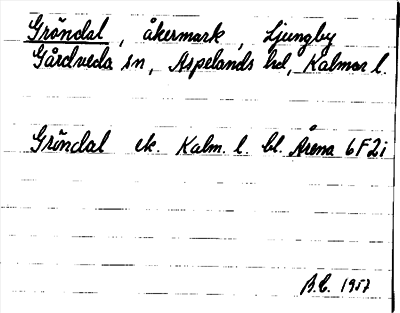 Gröndal, åkermark, Ljungby
Gårdveda sn, Aspelands hd, Kalmar l.
Gröndal ek. Kalm. l. bl. Årena 6F2i
B.L. 1957